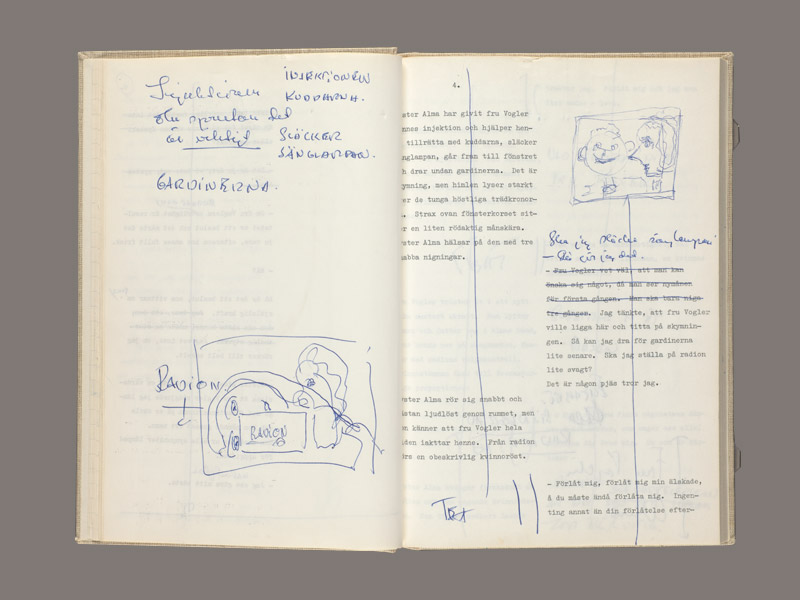 INJEKTIONEN
KUDDARNA.
Injektionen
den sprutan det
är viktigt
SLÄCKER
SÄNGLAMPAN.
GARDINERNA.
RADION.
RADION
4.
ster Alma har givit fru Vogler
nnes injektion och hjälper hen-
tillrätta med kuddarna, släcker
nglampan, går fram till fönstret
h drar undan gardinerna. Det är
ymning, men himlen lyser starkt
er de tunga höstliga trädkronor-
. Strax ovan fönsterkorset sit-
er en liten rödaktig månskära.
ster Alma hälsar på den med tre
abba nigningar.
ster Alma rör sig snabbt och
ästan ljudlöst genom rummet, men
on känner att fru Vogler hela
den iakttar henne. Från radion
örs en obeskrivlig kvinnoröst.
Ska jag släcka sänglampan
- Då gör jag det.
- Fru Vogler vet väl, att man kan
önska sig något, då man ser nymånen
för första gången. Man ska bara niga
tre gånger. Jag tänkte, att fru Vogler
ville ligga här och titta på skymnin-
gen. Så kan jag dra för gardinerna
lite senare. Ska jag ställa på radion
lite svagt?
Det är någon pjäs tror jag.
- Förlåt mig, förlåt mig min älskade,
Å du måste ändå förlåta mig. Ingen-
ting annat än din förlåtelse efter-